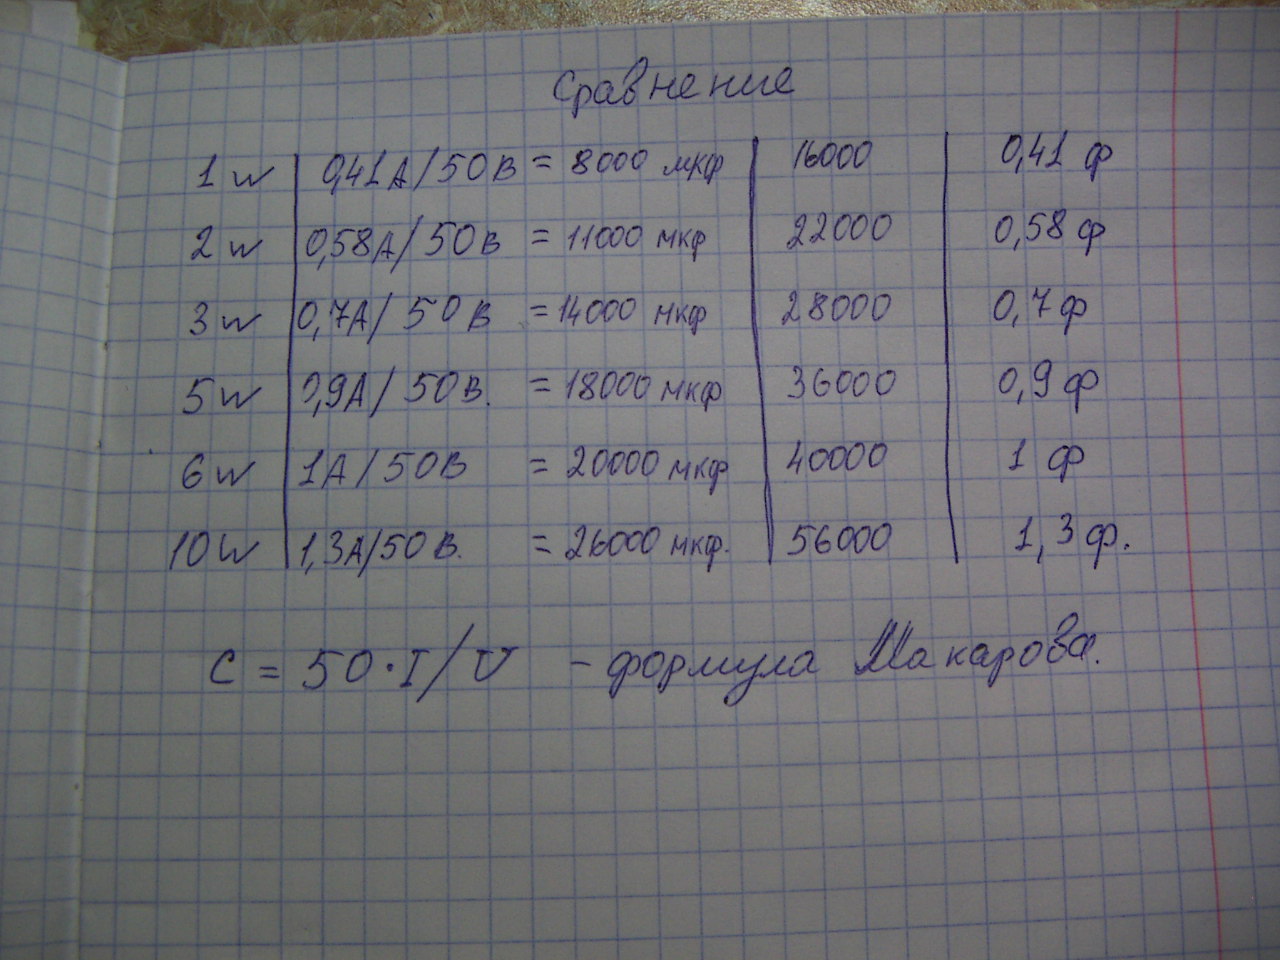 Сравнение
1 w 0,41А/50В = 8000 мкф 16000 0,41 ф
2 w 0,58А/50В = 11000 мкф 22000 0,58 ф
3 w 0,7А/50В = 14000 мкф 28000 0,7 ф
5 w 0,9А/50В. = 18000 мкф 36000 0,9 ф
6 w 1А/50В = 20000 мкф 40000 1 ф
10 w 1,3А/50В. = 26000 мкф. 56000 1,3 ф.
C = 50·I/U - формула Макарова.